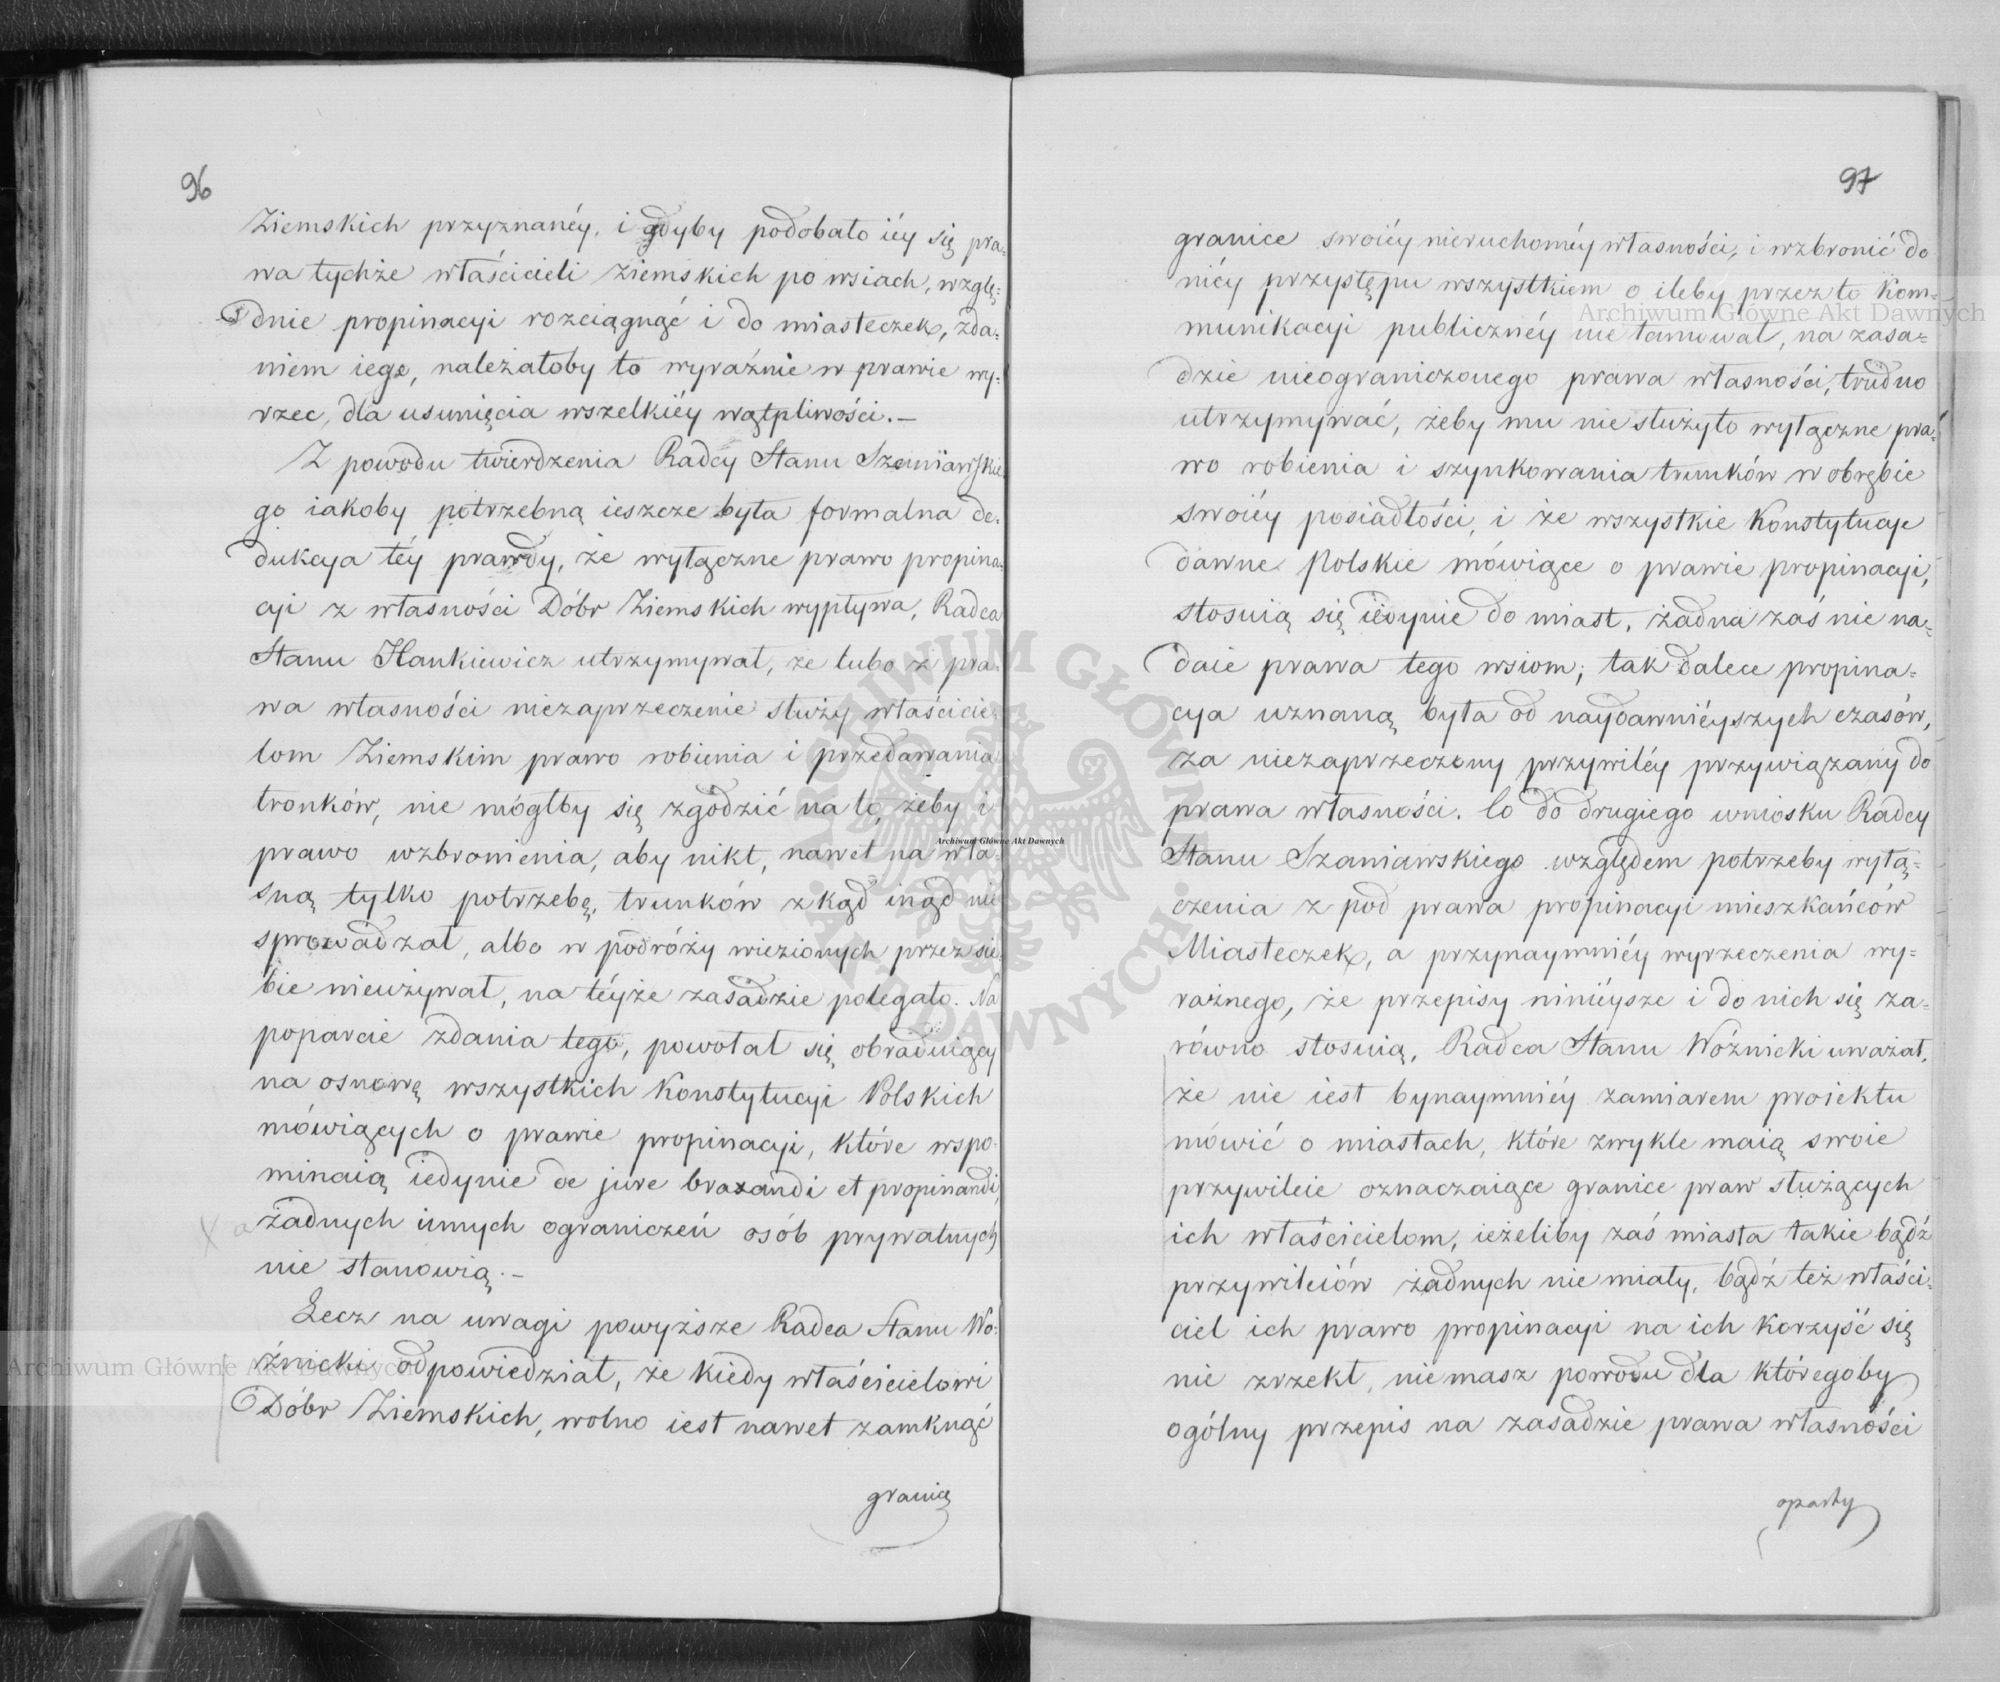 96
Ziemskich przyznanéy, i gdyby podobało iéy się pra-
wa tychże właścicieli ziemskich po wsiach, wzglę-
dnie propinacyi rozciągnąć i do miasteczek, zda-
niem iego, należałoby to wyraźnie w prawie wy-
rzec, dla usunięcia wszelkiéy wątpliwości.—
Z powodu twierdzenia Radcy Stanu Szaniawskie-
go iakoby potrzebną ieszcze była formalna de-
dukcya téy prawdy, że wyłączne prawo propina-
cyi z własności Dóbr Ziemskich wypływa, Radca
Stanu Hankiewicz utrzymywał, że lubo z pra-
wa własności niezaprzeczenie służy właścicie-
lom Ziemskim prawo robienia i przedawania
tronków, nie mógłby się zgodzić na to, żeby i
prawo wzbronienia, aby nikt, nawet na wła-
sną tylko potrzebę, trunków z kąd inąd nie
sprowadzał, albo w podróży wiezionych przez sie-
bie nieużywał, na téyże zasadzie polegało. Na
poparcie zdania tego, powołał się obraduiący
na osnowę wszystkich Konstytucyi Polskich
mówiących o prawie propinacyi, które wspo-
minaią iedynie de jure braxandi et propinandi,
żadnych innych ograniczeń osób prywatnych
nie stanowią.—
Lecz na uwagi powyższe Radca Stanu Wo-
źnicki odpowiedział, że kiedy właścicielowi
Dóbr Ziemskich, wolno iest nawet zamknąć
granicę
97
granice swoiéy nieruchoméy własności, i wzbronić do
niéy przystępu wszystkiem o ileby przez to Kom-
munikacyi publicznéy nie tamował, na zasa-
dzie nieograniczonego prawa własności, trudno
utrzymywać, żeby mu nie służyło wyłączne pra-
wo robienia i szynkowania trunków w obrębie
swoiéy posiadłości, i że wszystkie Konstytucye
dawne Polskie mówiące o prawie propinacyi,
stosuią się iedynie do miast, żadna zaś nie na-
daie prawa tego wsiom; tak dalece propina-
cya uznaną była od naydawniéyszych czasów,
za niezaprzeczony przywiléy przywiązany do
prawa własności. Co do drugiego wniosku Radcy
Stanu Szaniawskiego względem potrzeby wyłą-
czenia z pod prawa propinacyi mieszkańców
Miasteczek, a przynaymniéy wyrzeczenia wy-
raźnego, że przepisy niniéysze i do nich się za-
równo stosuią, Radca Stanu Woźnicki uważał,
że nie iest bynaymniéy zamiarem proiektu
mówić o miastach, które zwykle maią swoie
przywileie oznaczaiące granice praw służących
ich właścicielom, ieżeliby zaś miasta takie bądź
przywileiów żadnych nie miały, bądź też właści-
ciel ich prawo propinacyi na ich Korzyść się
nie zrzekł, nie masz powodu dla któregoby
ogólny przepis na zasadzie prawa własności
oparty
Archiwum Główne Akt Dawnych
Archiwum Główne Akt Dawnych
Archiwum Główne Akt Dawnych
ARCHIWUM GŁÓWNE AKT DAWNYCH